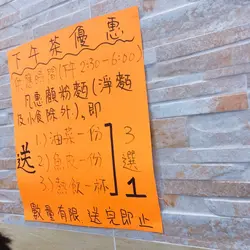 下午茶優惠
供應時間(下午2:30-6:00)
凡惠顧粉麵(淨麵
及小食除外)。即
送
1)油菜一份
2)魚皮一份
3)熱飲一杯
3
選
1
數量有限 送完即止